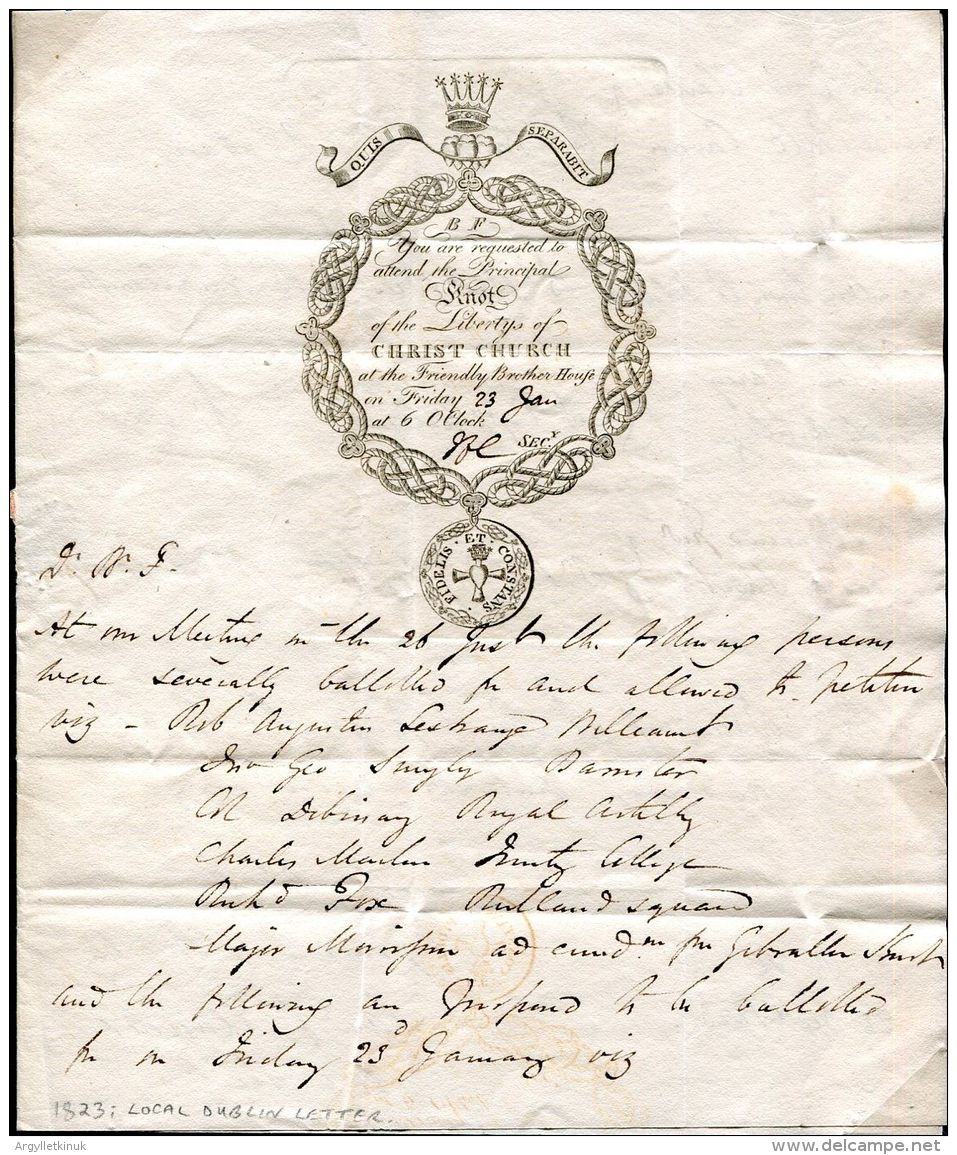 QUIS SEPARABIT
B F
You are requested to
attend the Principal
Knot
of the Libertys of
CHRIST CHURCH
at the Friendly Brother House
on Friday 23 Jan
at 6 O'Clock
SECY
FIDELIS ET CONSTANS
Dr. Br. F.
At our Meeting on the 26 Inst the following persons
were severally ballotted for and allowed to petition
viz - Rob Augustin Lestrange
Jno Geo Barrister
Col Royal Artilly
Charles Trinity College
Richd Fox Rutland square
Major Morrison ad eundm for Gibralter Knot
and the following are proposed to be ballotted
for on Friday 23d January viz
1823; LOCAL DUBLIN LETTER.
Argylletkinuk
www.delcampe.net